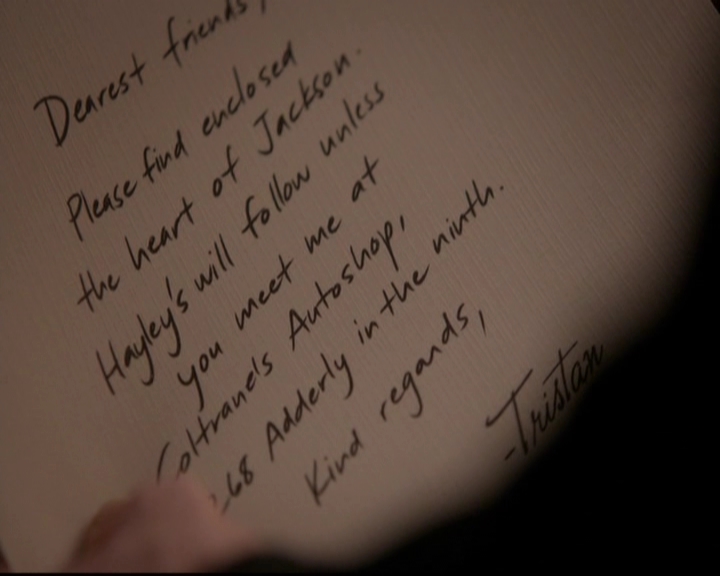 Dearest friends,
Please find enclosed
the heart of Jackson.
Hayley's will follow unless
you meet me at
Coltrane's Autoshop,
68 Adderly in the ninth.
Kind regards,
-Tristan